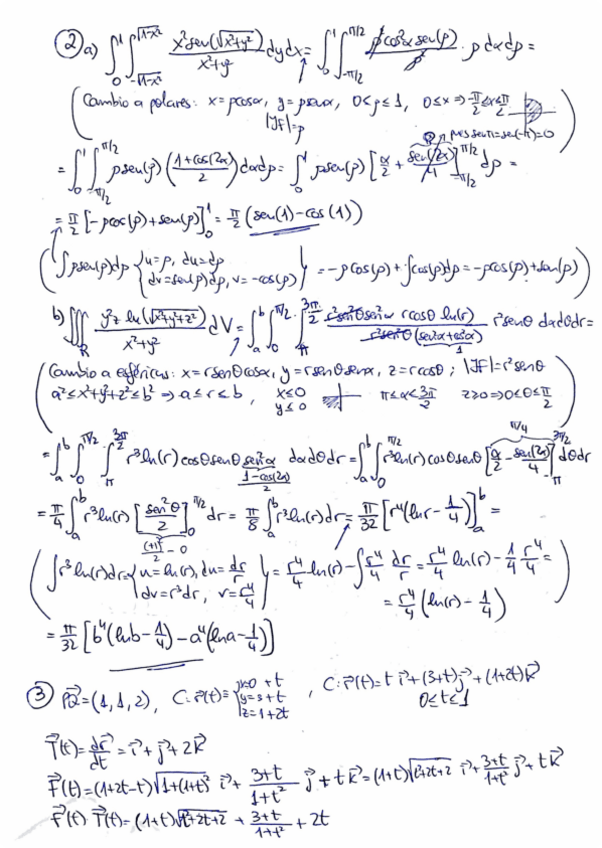 ② a) ∫₀¹ ∫_{-√(1-x²)}^{√(1-x²)} x² sen(√(x²+y²)) / (x²+y²) dy dx = ∫₀¹ ∫_{-π/2}^{π/2} ρ² cos²α sen(ρ) / ρ² · ρ dα dρ =
(Cambio a polares: x=ρcosα, y=ρsenα, 0≤ρ≤1, 0≤x ⇒ -π/2≤α≤π/2
|Jf|=ρ
pues senπ=sen(-π)=0)
= ∫₀¹ ∫_{-π/2}^{π/2} ρsen(ρ) ((1+cos(2α))/2) dαdρ = ∫₀¹ ρsen(ρ) [α/2 + sen(2α)/4]_{-π/2}^{π/2} dρ =
= π/2 [-ρcos(ρ)+sen(ρ)]₀¹ = π/2 (sen(1)-cos(1))
(∫ρsen(ρ)dρ {u=ρ, du=dρ
dv=sen(ρ)dρ, v=-cos(ρ)} = -ρcos(ρ)+∫cos(ρ)dρ = -ρcos(ρ)+sen(ρ))
b) ∭_R y²z ln(√(x²+y²+z²)) / (x²+y²) dV = ∫ₐᵇ ∫₀^{π/2} ∫_π^{3π/2} r²sen²θsen²α rcosθ ln(r) / (r²sen²θ(sen²α+cos²α)) r²senθ dαdθdr =
1
(Cambio a esféricas: x=rsenθcosα, y=rsenθsenα, z=rcosθ; |Jf|=r²senθ
a²≤x²+y²+z²≤b² ⇒ a≤r≤b, x≤0 y≤0 π≤α≤3π/2 z≥0⇒0≤θ≤π/2)
= ∫ₐᵇ ∫₀^{π/2} ∫_π^{3π/2} r³ln(r) cosθsenθ sen²α dαdθdr = ∫ₐᵇ ∫₀^{π/2} r³ln(r)cosθsenθ [α/2 - sen(2α)/4]_π^{3π/2} dθdr
(1-cos(2α))/2 π/4
= π/4 ∫ₐᵇ r³ln(r) [sen²θ/2]₀^{π/2} dr = π/8 ∫ₐᵇ r³ln(r)dr = π/32 [r⁴(lnr - 1/4)]ₐᵇ =
(+1)²/2 - 0
(∫r³ln(r)dr = {u=ln(r), du=dr/r
dv=r³dr, v=r⁴/4} = r⁴/4 ln(r) - ∫r⁴/4 dr/r = r⁴/4 ln(r) - 1/4 r⁴/4 =
= r⁴/4 (ln(r) - 1/4))
= π/32 [b⁴(lnb - 1/4) - a⁴(lna - 1/4)]
③ PQ⃗=(1,1,2), C: r⃗(t)≡{x=0+t
y=3+t
z=1+2t, C: r⃗(t)=t i⃗+(3+t)j⃗+(1+2t)k⃗
0≤t≤1
T⃗(t)=dr⃗/dt=i⃗+j⃗+2k⃗
F⃗(t)=(1+2t-t)√(1+(1+t)²) i⃗ + (3+t)/(1+t²) j⃗ + t k⃗ = (1+t)√(t²+2t+2) i⃗ + (3+t)/(1+t²) j⃗ + t k⃗
F⃗(t) T⃗(t)=(1+t)√(t²+2t+2) + (3+t)/(1+t²) + 2t